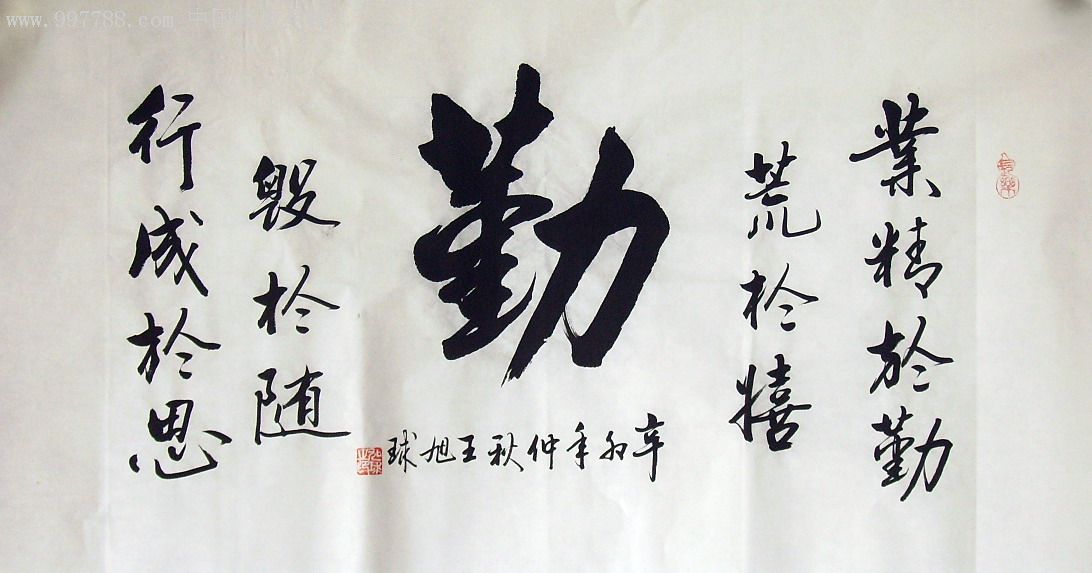 www.997788.com
業精於勤
荒於嬉
勤
毁於随
行成於思
辛卯年仲秋王旭球